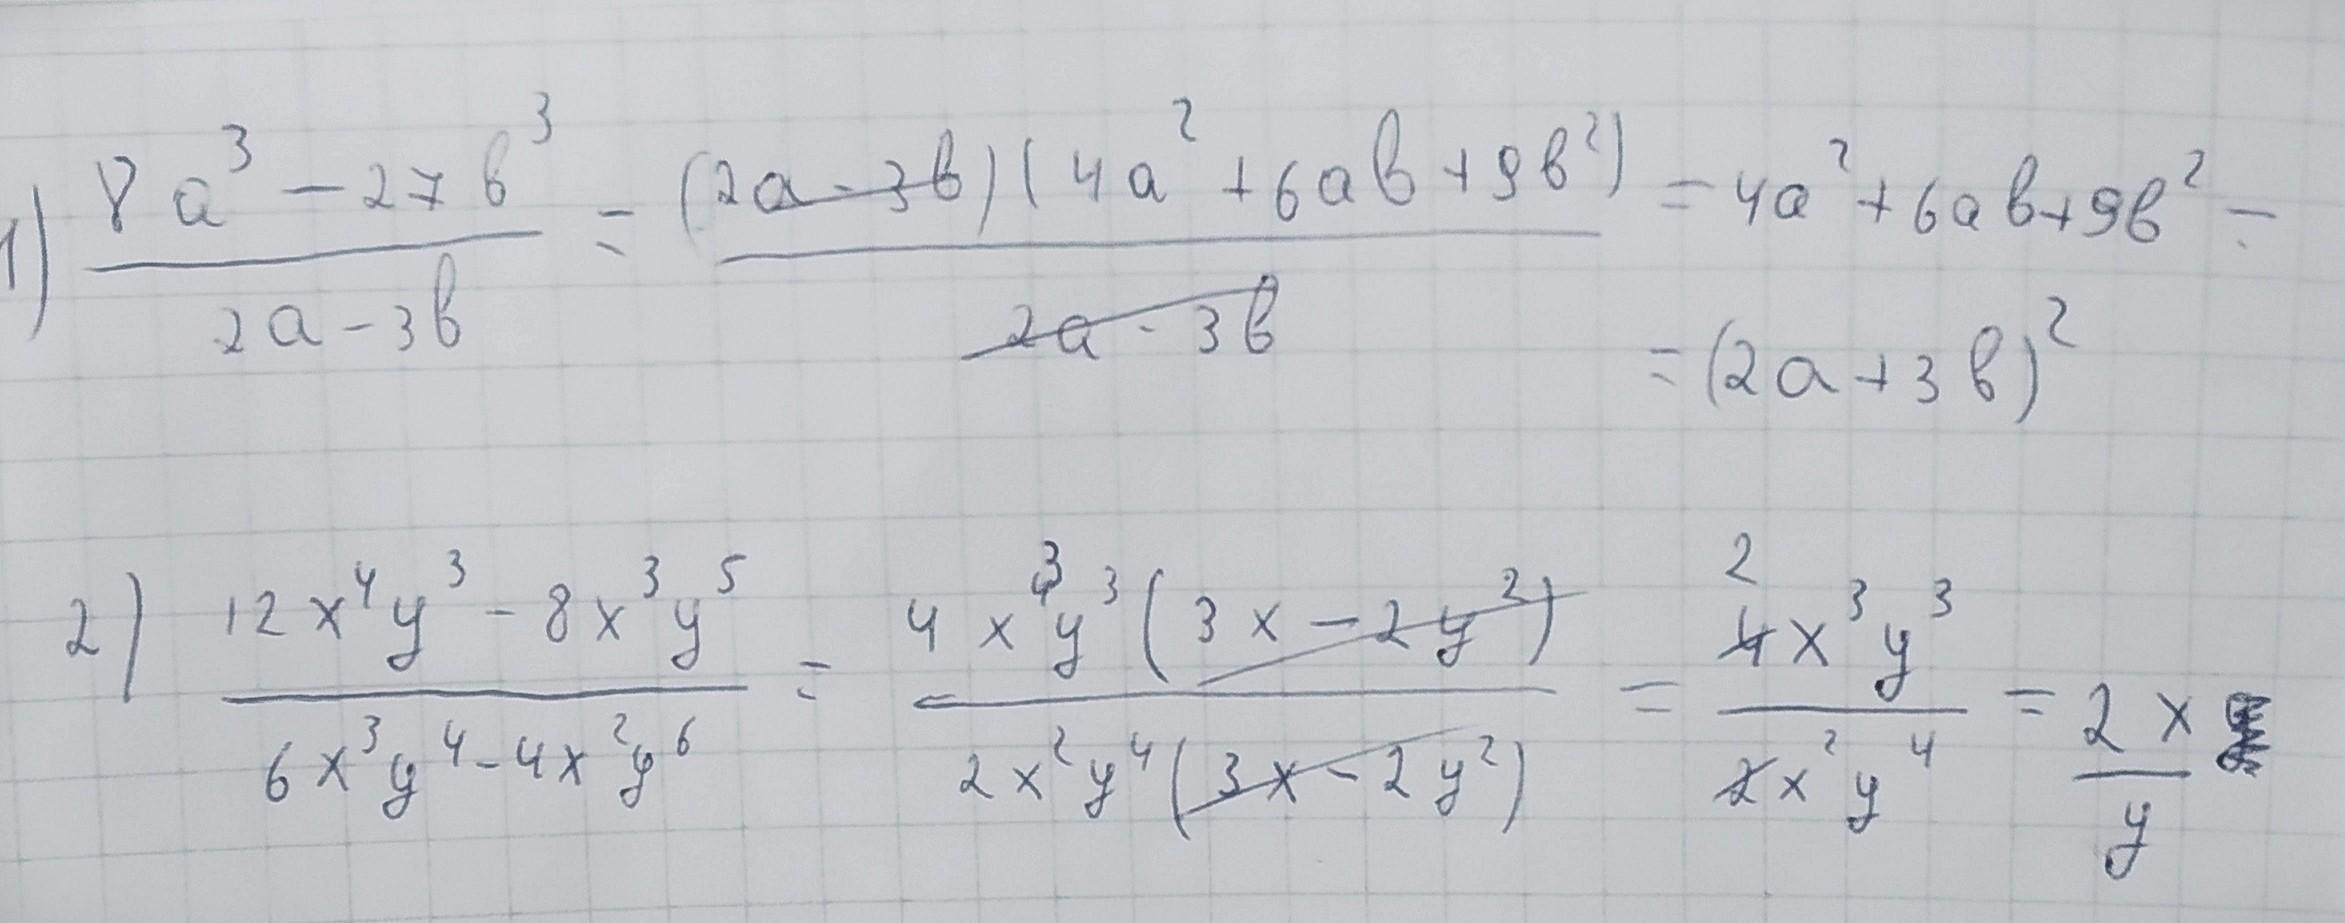 1) (8a³ − 27b³)/(2a − 3b) = (2a − 3b)(4a² + 6ab + 9b²)/(2a − 3b) = 4a² + 6ab + 9b² =
= (2a + 3b)²
2) (12x⁴y³ − 8x³y⁵)/(6x³y⁴ − 4x²y⁶) = 4x³y³(3x − 2y²)/(2x²y⁴(3x − 2y²)) = 2 4x³y³/(2x²y⁴) = 2x/y